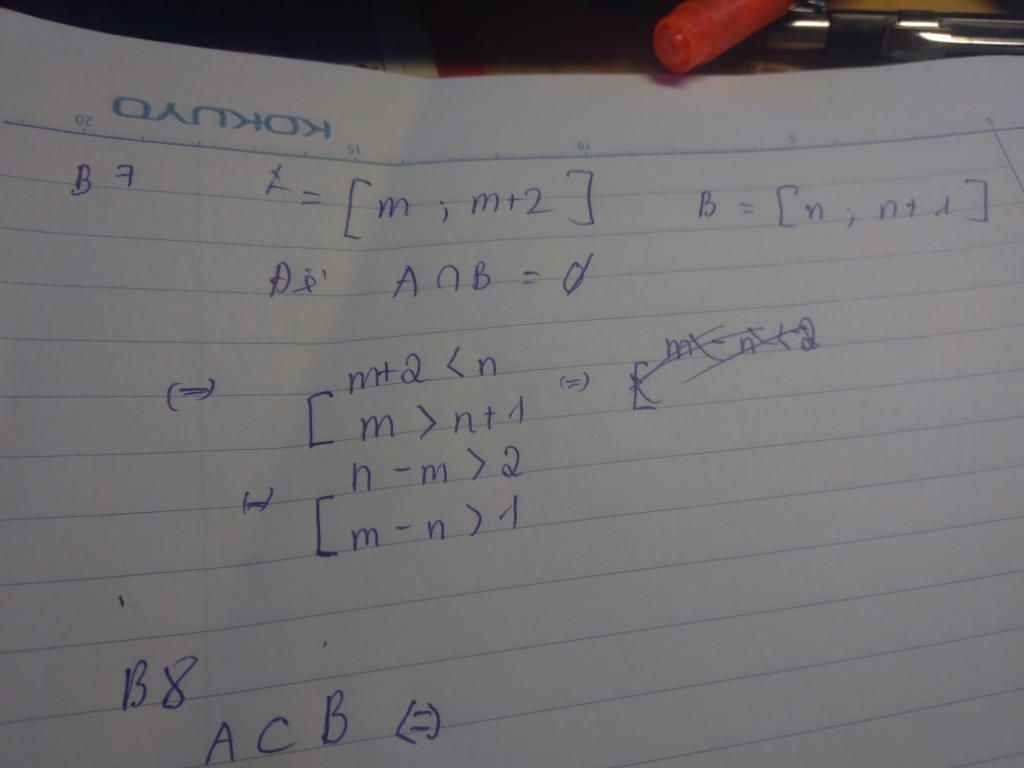 KOKUYO
20 15 10 5 0
B 7 A = [m ; m+2] B = [n ; n+1]
Để A ∩ B = ∅
(=) [ m+2 < n (=)
m > n+1
(=) [ n - m > 2
m - n > 1
B8
A ⊂ B (=)